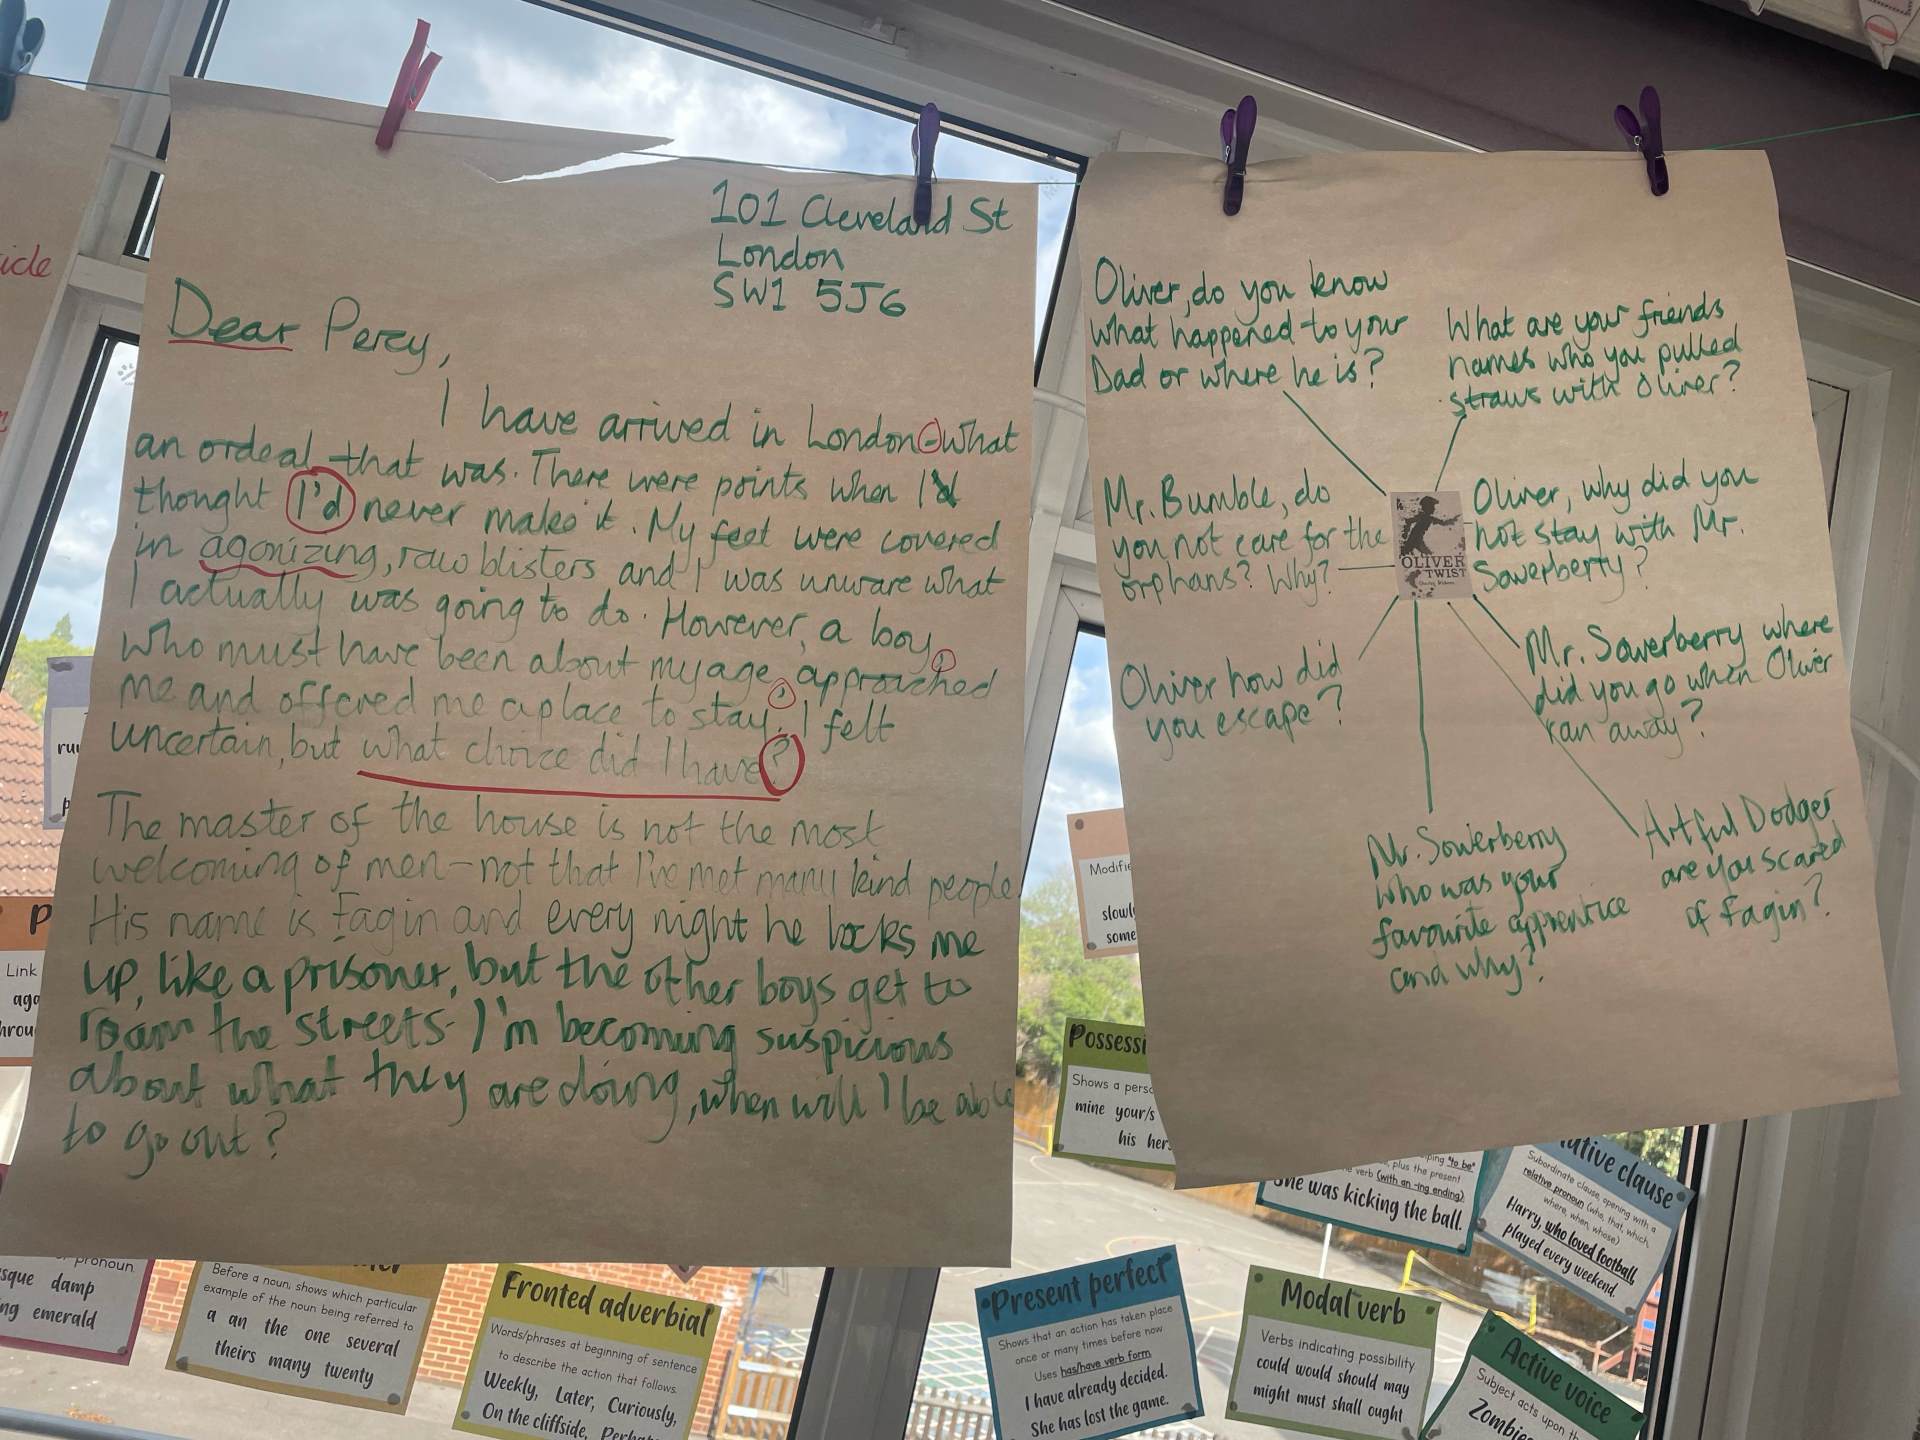 101 Cleveland St
London
SW1 5J6
Dear Percy,
I have arrived in London-what
an ordeal that was. There were points when I
thought I'd never make it. My feet were covered
in agonizing, raw blisters and I was unware what
I actually was going to do. However, a boy,
who must have been about my age, approached
me and offered me a place to stay. I felt
uncertain, but what choice did I have?
The master of the house is not the most
welcoming of men-not that I've met many kind people
His name is Fagin and every night he locks me
up, like a prisoner, but the other boys get to
roam the streets. I'm becoming suspicious
about what they are doing, when will I be able
to go out?
Oliver, do you know
what happened to your
Dad or where he is?
What are your friends
names who you pulled
straws with Oliver?
Mr. Bumble, do
you not care for the
orphans? Why?
OLIVER
TWIST
Oliver, why did you
not stay with Mr.
Sowerberry?
Oliver how did
you escape?
Mr. Sowerberry where
did you go when Oliver
ran away?
Mr. Sowerberry
who was your
favourite apprentice
and why?
Artful Dodger
are you scared
of Fagin?
icle
Link
aga
hrou
Modifie
slowl
some
Possessi
Shows a perso
mine your/s
his her
pronoun.
sque damp
ng emerald
Before a noun, shows which particular
example of the noun being referred to
a an the one several
theirs many twenty
Fronted adverbial
Words/phrases at beginning of sentence
to describe the action that follows.
Weekly, Later, Curiously,
On the cliffside, Perha
Present perfect
Shows that an action has taken place
once or many times before now
Uses has/have verb form.
I have already decided.
She has lost the game.
Modal verb
Verbs indicating possibility
could would should may
might must shall ought
ping "to be"
plus the present
verb (with an -ing ending)
She was kicking the ball.
ative clause
Subordinate clause, opening with a
relative pronoun (who, that, which,
where, when, whose)
Harry, who loved football,
played every weekend.
Active voice
Subject acts upon th
Zombie